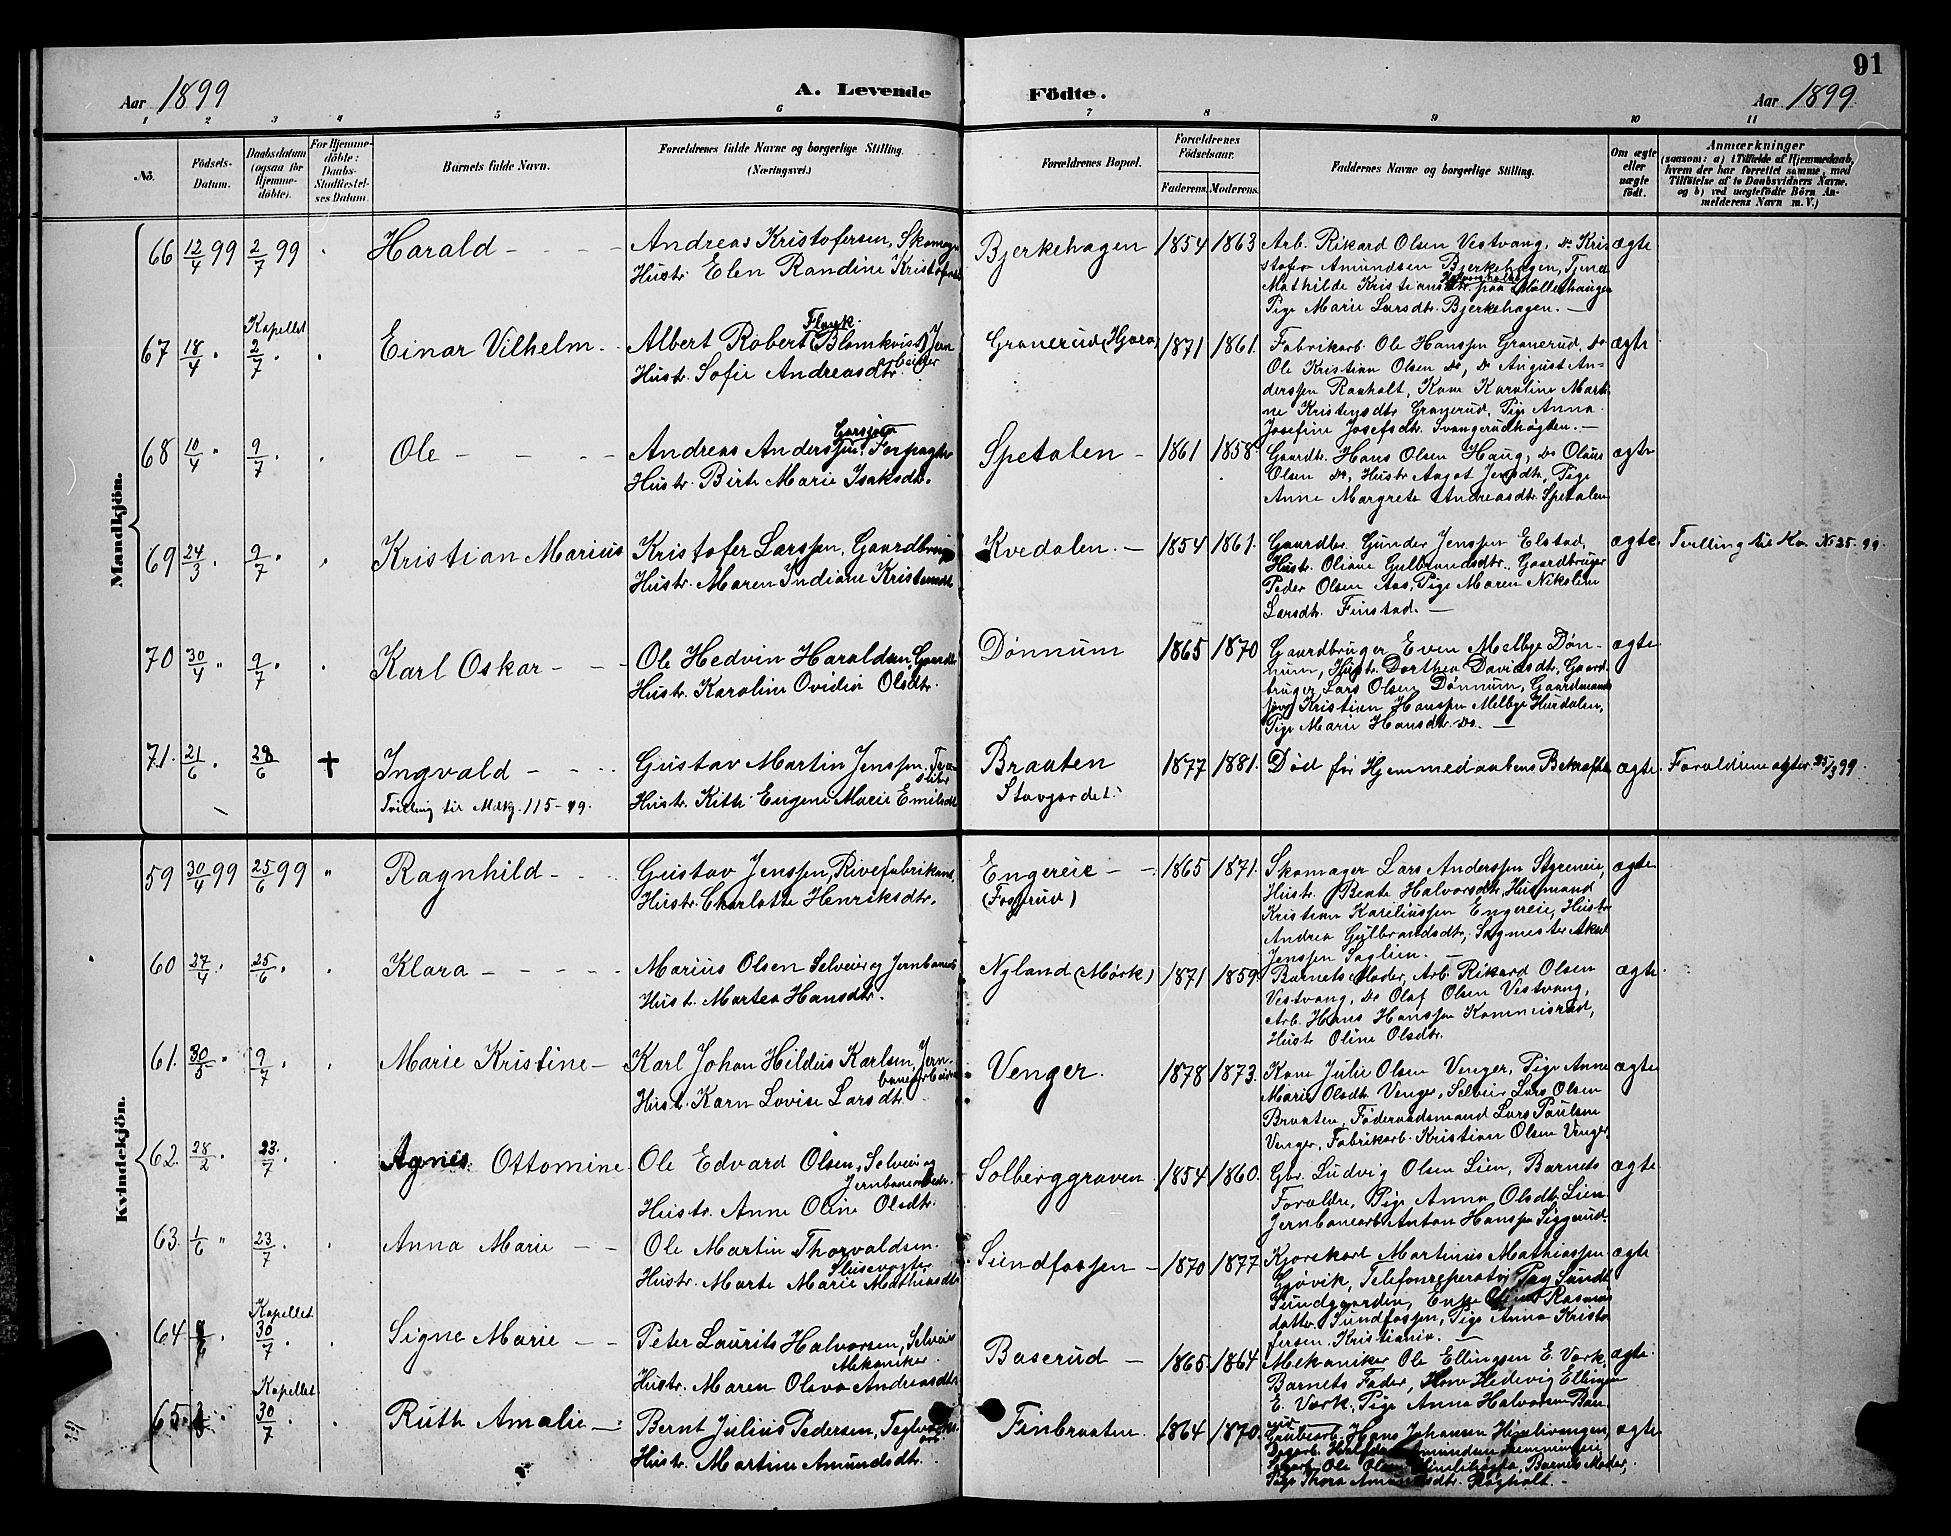 91
Aar 1899
A. Levende Födte.
Aar 1899
1 2 3 4 5 6 7 8 9 10 11
No.
Födsels-Datum.
Daabsdatum (ogsaa for Hjemme-döbte).
For Hjemme-döbte: Daabs-Stadfæstel-ses Datum.
Barnets fulde Navn.
Forældrenes fulde Navne og borgerlige Stilling. (Næringsvei.)
Forældrenes Bopæl.
Forældrenes Födselsaar.
Faderens. Moderens.
Faddernes Navne og borgerlige Stilling.
Om ægte eller uægte födt.
Anmærkninger
(saasom: a) i Tilfælde af Hjemmedaab, hvem der har forrettet samme, med Tilföielse af to Daabsvidners Navne, og b) ved uægtefödte Börn Anmelderens Navn m. V.)
Mandkjön.
66 12/4 99 2/7 99 Harald
Andreas Kristofersen, Skomager
Hustr. Elen Randine Kristofersdtr
Bjerkehagen 1854 1863
Arb. Rikard Olsen Vestvang, Do Kri-
stofer Amundsen Bjerkehagen, Tjener
Mathilde Kristiansdtr. paa Möllerhaugen
Pige Marie Larsdtr. Bjerkehagen. —
ægte
67 18/4 Kapellet 2/7 Einar Vilhelm
Albert Robert Blomkvist, Jern
arbeider
Hustr. Sofie Andreasdtr.
Granerud 1871 1861
Fabrikarb. Ole Hanssen Granerud, Do
Ole Kristian Olsen Do, Do August An-
derssen Raaholt, Kone Karoline Marti-
ne Kristensdtr. Granerud, Pige Anna
Josefine Josefsdtr. Svangerudhögten. —
ægte
68 10/4 9/7 Ole
Andreas Anderssen, Forpagter
Hustr. Birte Marie Isaksdtr.
Spetalen 1861 1858
Gaardbr. Hans Olsen Haug, Do Olaus
Olsen Do, Hustr Aagot Jensdtr, Pige
Anne Margrete Andreasdtr. Spetalen
ægte
69 24/3 9/7 Kristian Marius
Kristofer Larssen, Gaardbruger
Hustr. Maren Indiane Kristensdtr
Kvedalen. 1854 1861.
Gaardbr. Gunder Jenssen Elstad,
Hustr. Oliane Gulbrandsdtr., Gaardbruger
Peder Olsen Aas, Pige Maren Nikoline
Larsdtr. Finstad. —
ægte. Tvilling til Kv. No 35-99.
70 30/4 9/7 Karl Oskar
Ole Hedvin Haraldsen, Gaardbr
Hustr. Karoline Ovidie Olsdtr.
Dönnum 1865 1870
Gaardbruger Even Melbye Dön-
num, Hustr. Dorthea Davidsdtr, Gaard-
bruger Lars Olsen Dönnum, Gaardmands
søn Kristian Hanssen Melbye Hurdalen,
Pige Marie Hansdtr. Do. —
ægte
71. 21/6 28/6 † Ingvald
Tvilling til Mdkj. 115-99.
Gustav Martin Jenssen,
Hustr. Kitti Eugene Marie Emilsdtr
Braaten
Stavgardet. 1877 1881.
Död för Hjemmedaabens Bekræftelse
ægte. Forældrene ægtev. 25/3 99.
Kvindekjön.
59 30/4 99 25/6 99 Ragnhild
Gustav Jenssen, Rivefabrikant,
Hustr. Charlotte Henriksdtr.
Engereie
(Fosserud) 1865 1871.
Skomager Lars Anderssen Styreneie,
Hustr. Beate Halvorsdtr, Husmand
Kristian Kareliussen Engereie, Hustr
Andrea Gulbrandsdtr, Sagmester Aksel
Jenssen Saglien. —
ægte
60 27/4 25/6 Klara
Marius Olsen Selveier og Jernbanearb
Hustr. Martea Hansdtr.
Nyland (Mørk) 1871 1859
Barnets Moder, Arb. Rikard Olsen
Vestvang, Do Olaf Olsen Vestvang,
Arb. Hans Hanssen Kommisrud,
Hustr Oline Olsdtr.
ægte.
61. 30/5 9/7 Marie Kristine
Karl Johan Hildus Karlsen, Jern-
banearbeider
Hustr. Karn Lovise Larsdtr.
Venger. 1878 1873.
Kone Julie Olsen Venger, Pige Anne
Marie Olsdtr Venger, Selveier Lars Olsen
Braaten, Föderaadsmand Lars Paulsen
Venger, Fabrikarb. Kristian Olsen Venger
ægte
62. 28/2 23/7 Agnes Ottomine
Ole Edvard Olsen, Selveier og
Jernbanearbeider.
Hustr. Anne Oline Olsdtr.
Solberggraven 1854 1860.
Gbr. Ludvig Olsen Lien, Barnets
Forældre, Pige Anna Olsdtr. Lien
Jernbanearb Anton Hanssen Siggerud.
ægte
63. 1/6 23/7 Anna Marie
Ole Martin Thorvaldsen.
Slusevogter
Hustr. Marte Marie Mathiasdtr
Sundfossen 1870 1877
Kjørekarl Martinus Mathiassen
Gjøvik, Telefonreperatør
Sundgaarden, Enke Rasmus
datter Sundfossen, Pige Anna Kristo
fersen Kristiania. —
ægte
64 Kapellet 30/7 Signe Marie
Peter Laurits Halvorsen, Selveier
Mekaniker.
Hustr. Maren Olava Andreasdtr
Baserud 1865 1864
Mekaniker Ole Ellingsen E. Værk,
Barnets Fader, Kone Hedevig Ellingsen
E. Værk, Pige Anna Halvorsen Base-
rud
ægte.
65. Kapellet 30/7 Ruth Amalie
Bernt Julius Pedersen,
Hustr. Martine Amundsdtr.
Finbraaten. 1864 1870.
Grubearb. Hans Johansen Himlivangen,
Barnets Moder,
Pige Thora Amundsdtr. Raaholt. —
ægte